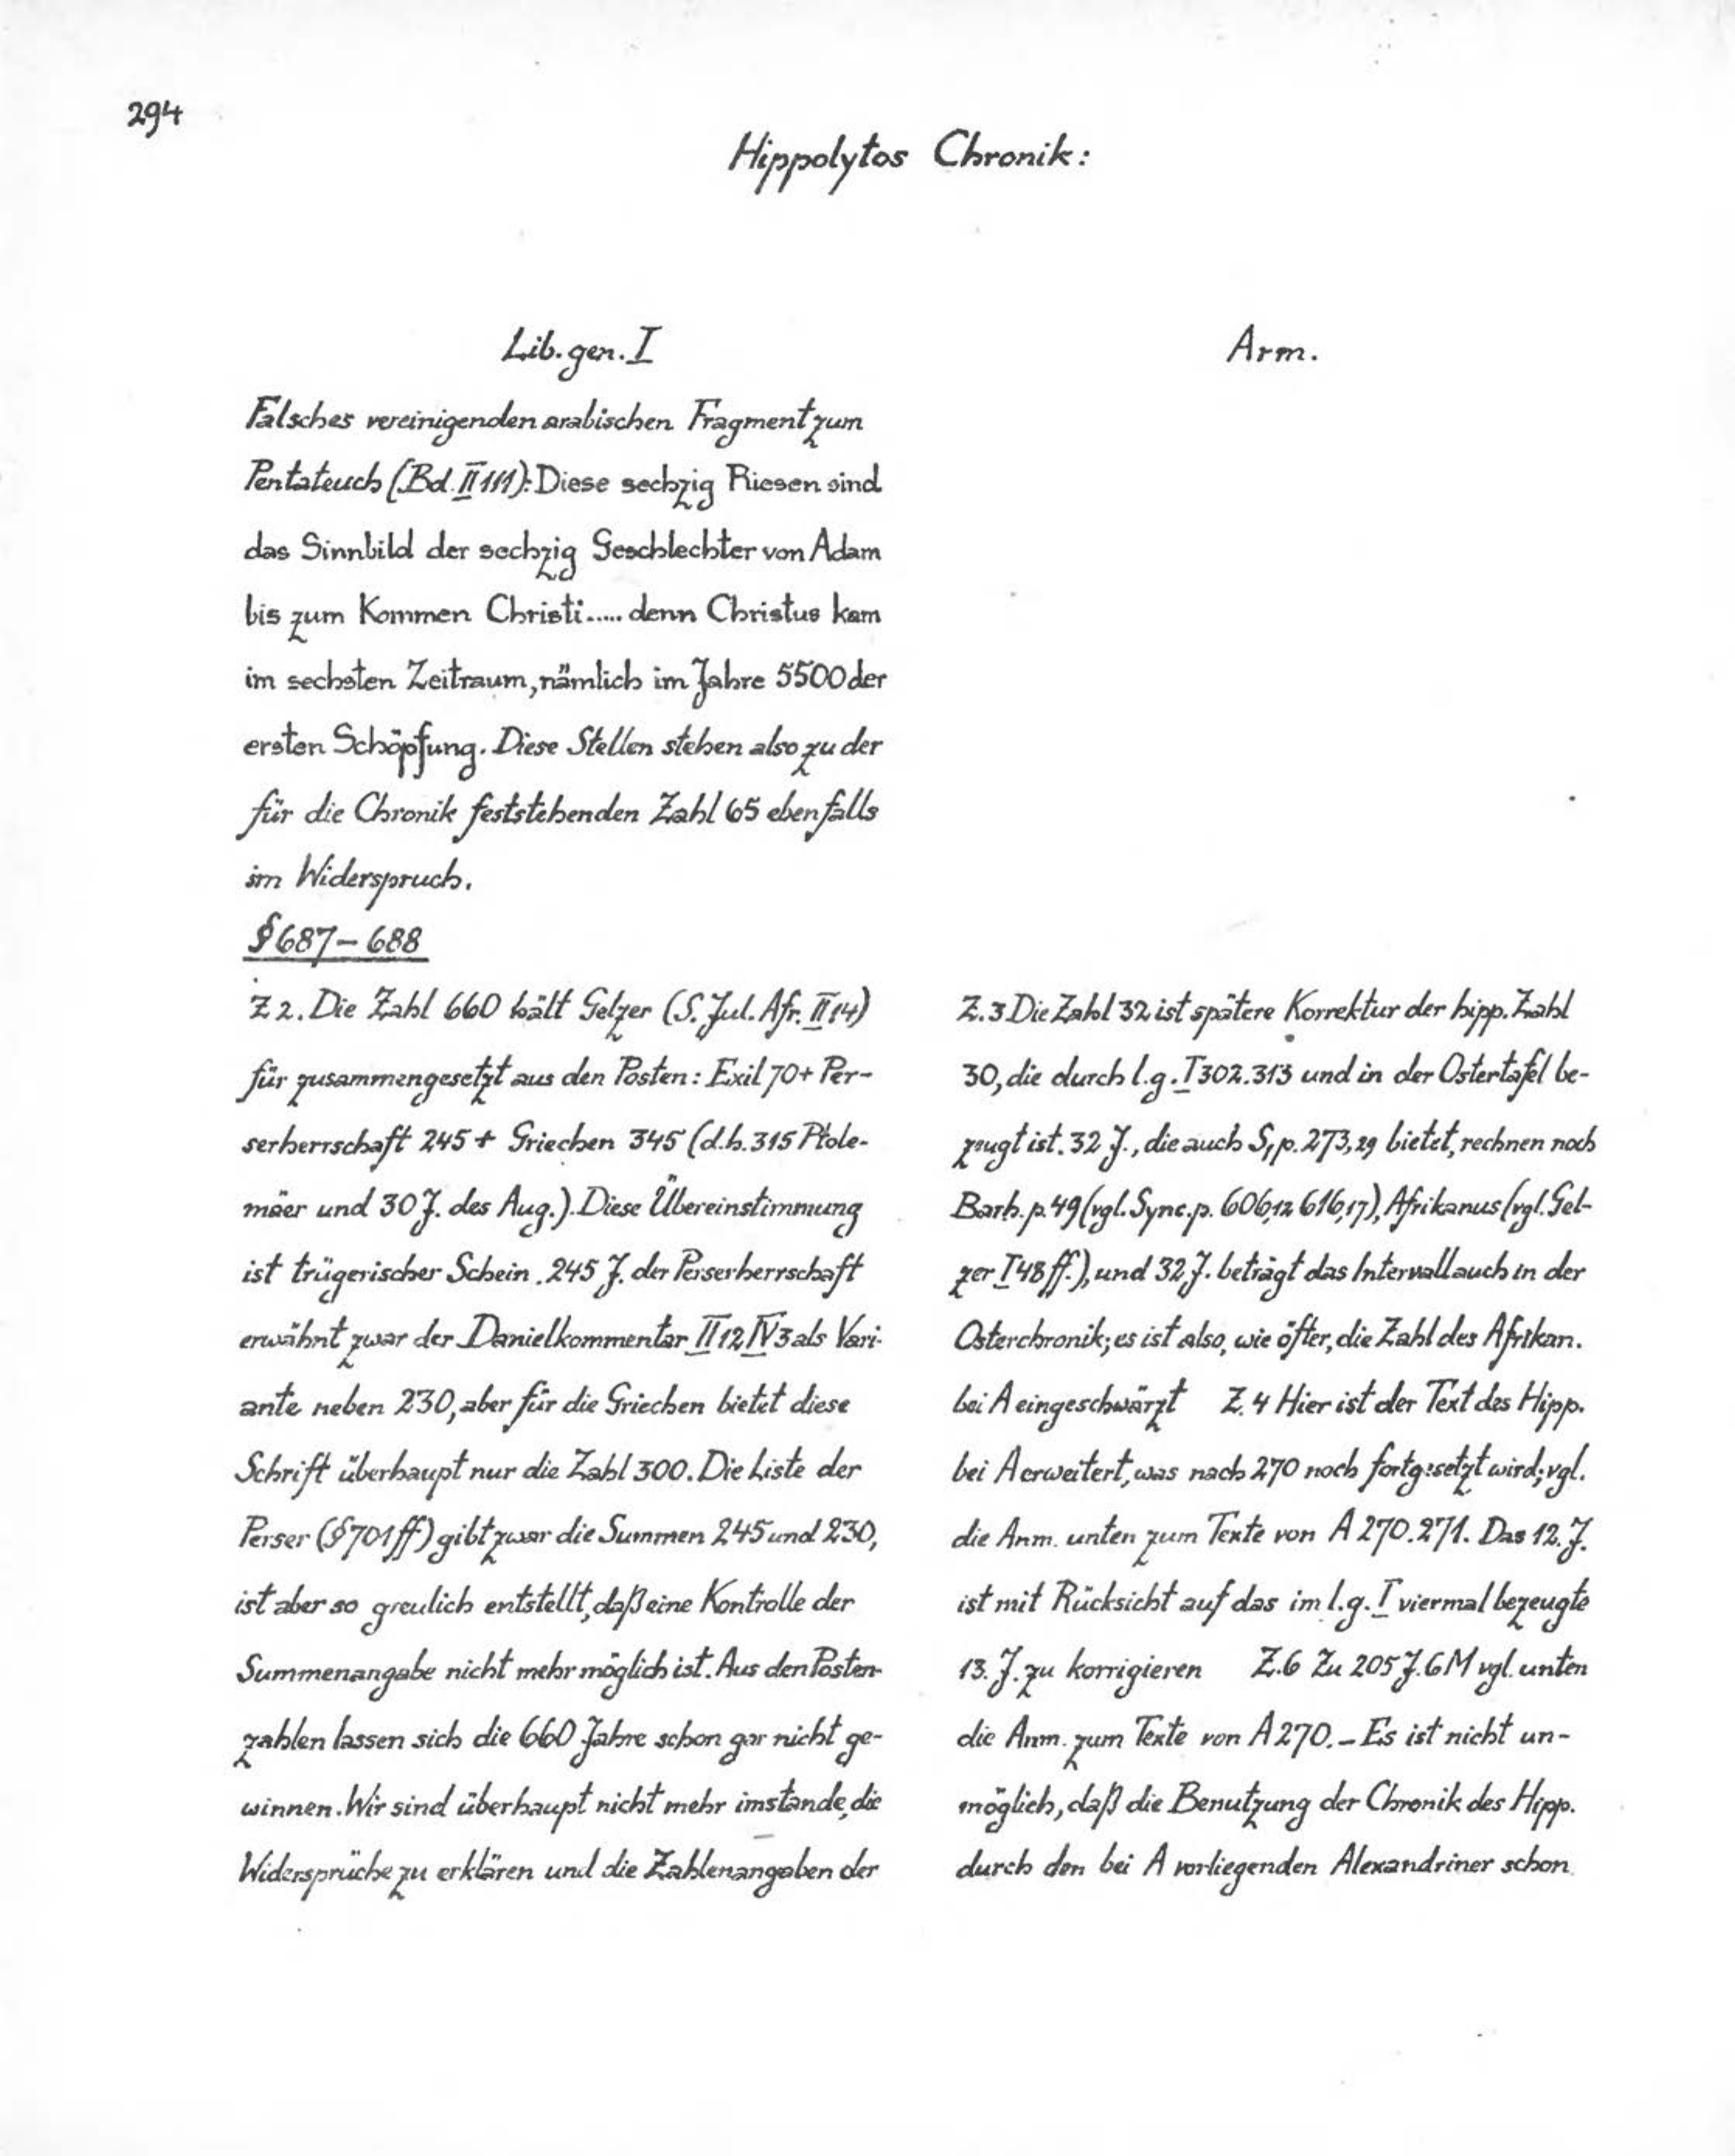 294
Hippolytos Chronik:
Lib. gen. I
Falsches vereinigenden arabischen Fragment zum
Pentateuch (Bd. II 111): Diese sechzig Riesen sind
das Sinnbild der sechzig Geschlechter von Adam
bis zum Kommen Christi..... denn Christus kam
im sechsten Zeitraum, nämlich im Jahre 5500 der
ersten Schöpfung. Diese Stellen stehen also zu der
für die Chronik feststehenden Zahl 65 ebenfalls
im Widerspruch.
§ 687 – 688
Z 2. Die Zahl 660 hält Gelzer (S. Jul. Afr. II 14)
für zusammengesetzt aus den Posten: Exil 70 + Per-
serherrschaft 245 + Griechen 345 (d.h. 315 Ptole-
mäer und 30 J. des Aug.). Diese Übereinstimmung
ist trügerischer Schein. 245 J. der Perserherrschaft
erwähnt zwar der Danielkommentar II 12 IV 3 als Vari-
ante neben 230, aber für die Griechen bietet diese
Schrift überhaupt nur die Zahl 300. Die Liste der
Perser (§ 701 ff) gibt zwar die Summen 245 und 230,
ist aber so greulich entstellt, daß eine Kontrolle der
Summenangabe nicht mehr möglich ist. Aus den Posten-
zahlen lassen sich die 660 Jahre schon gar nicht ge-
winnen. Wir sind überhaupt nicht mehr imstande, die
Widersprüche zu erklären und die Zahlenangaben der
Arm.
Z. 3 Die Zahl 32 ist spätere Korrektur der hipp. Zahl
30, die durch l.g. I 302. 313 und in der Ostertafel be-
zeugt ist. 32 J., die auch S, p. 273,29 bietet, rechnen noch
Barb. p. 49 (vgl. Sync. p. 606,12 616,17), Afrikanus (vgl. Gel-
zer I 48 ff.), und 32 J. beträgt das Intervall auch in der
Osterchronik; es ist also, wie öfter, die Zahl des Afrikan.
bei A eingeschwärzt Z. 4 Hier ist der Text des Hipp.
bei A erweitert, was nach 270 noch fortgesetzt wird; vgl.
die Anm. unten zum Texte von A 270. 271. Das 12. J.
ist mit Rücksicht auf das im l.g. I viermal bezeugte
13. J. zu korrigieren Z. 6 Zu 205 J. 6 M vgl. unten
die Anm. zum Texte von A 270. – Es ist nicht un-
möglich, daß die Benutzung der Chronik des Hipp.
durch den bei A vorliegenden Alexandriner schon